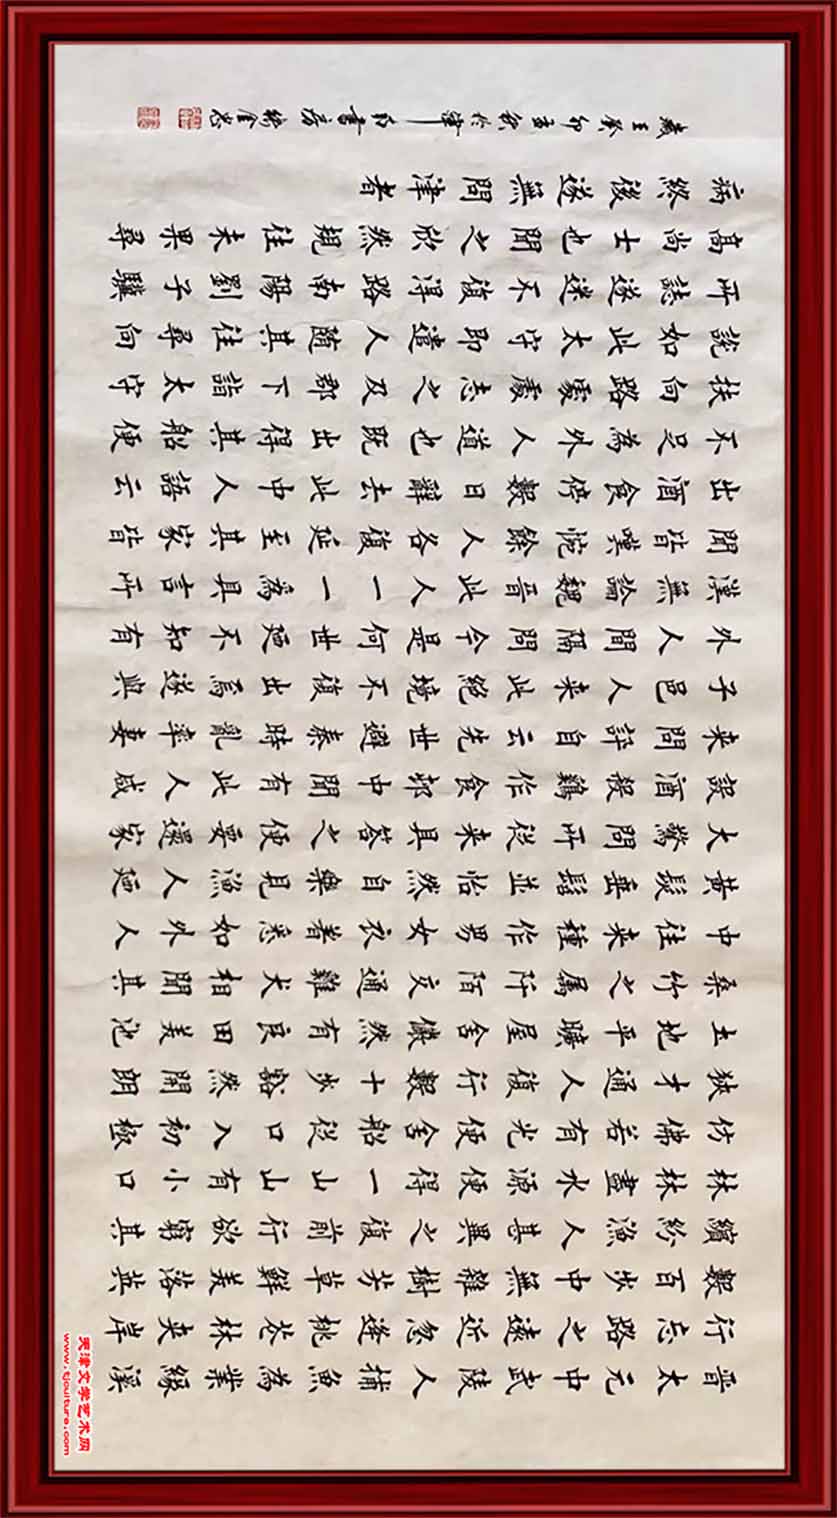 晋太元中武陵人捕魚為業緣溪
行忘路之遠近忽逢桃花林夾岸
數百步中無雜樹芳草鮮美落英
繽紛漁人甚異之復前行欲窮其
林林盡水源便得一山山有小口
仿佛若有光便舍船從口入初極
狹才通人復行數十步豁然開朗
土地平曠屋舍儼然有良田美池
桑竹之属阡陌交通雞犬相聞其
中往来種作男女衣著悉如外人
黃髮垂髫並怡然自樂見漁人廼
大驚問所從来具答之便要還家
設酒殺鷄作食邨中聞有此人咸
来問訊自云先世避秦時亂率妻
子邑人来此絶境不復出焉遂與
外人間隔問今是何世廼不知有
漢無論魏晋此人一一為具言所
聞皆嘆惋餘人各復延至其家皆
出酒食停數日辭去此中人語云
不足為外人道也既出得其船便
扶向路處處志之及郡下詣太守
說如此太守即遣人随其往尋向
所誌遂迷不復得路南陽劉子驥
高尚士也聞之欣然規往未果尋
病終後遂無問津者
歲至癸卯孟於津書房金忠
天津文学艺术网
www.tjculture.com